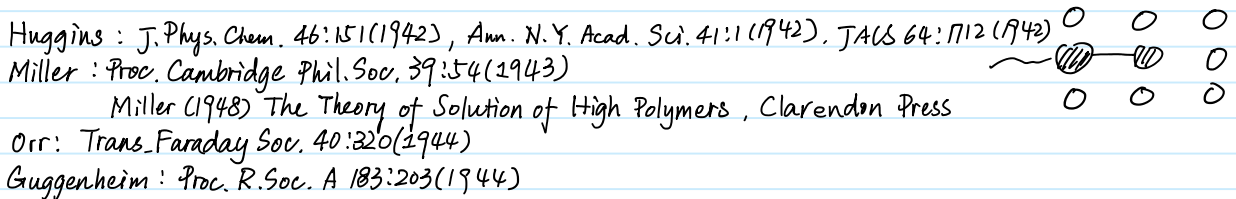 Huggins : J. Phys. Chem. 46:151(1942), Ann. N.Y. Acad. Sci. 41:1(1942). JACS 64:1712(1942)
Miller : Proc. Cambridge Phil. Soc. 39:54(1943)
Miller (1948) The Theory of Solution of High Polymers , Clarendon Press
Orr: Trans. Faraday Soc. 40:320(1944)
Guggenheim : Proc. R. Soc. A 183:203(1944)